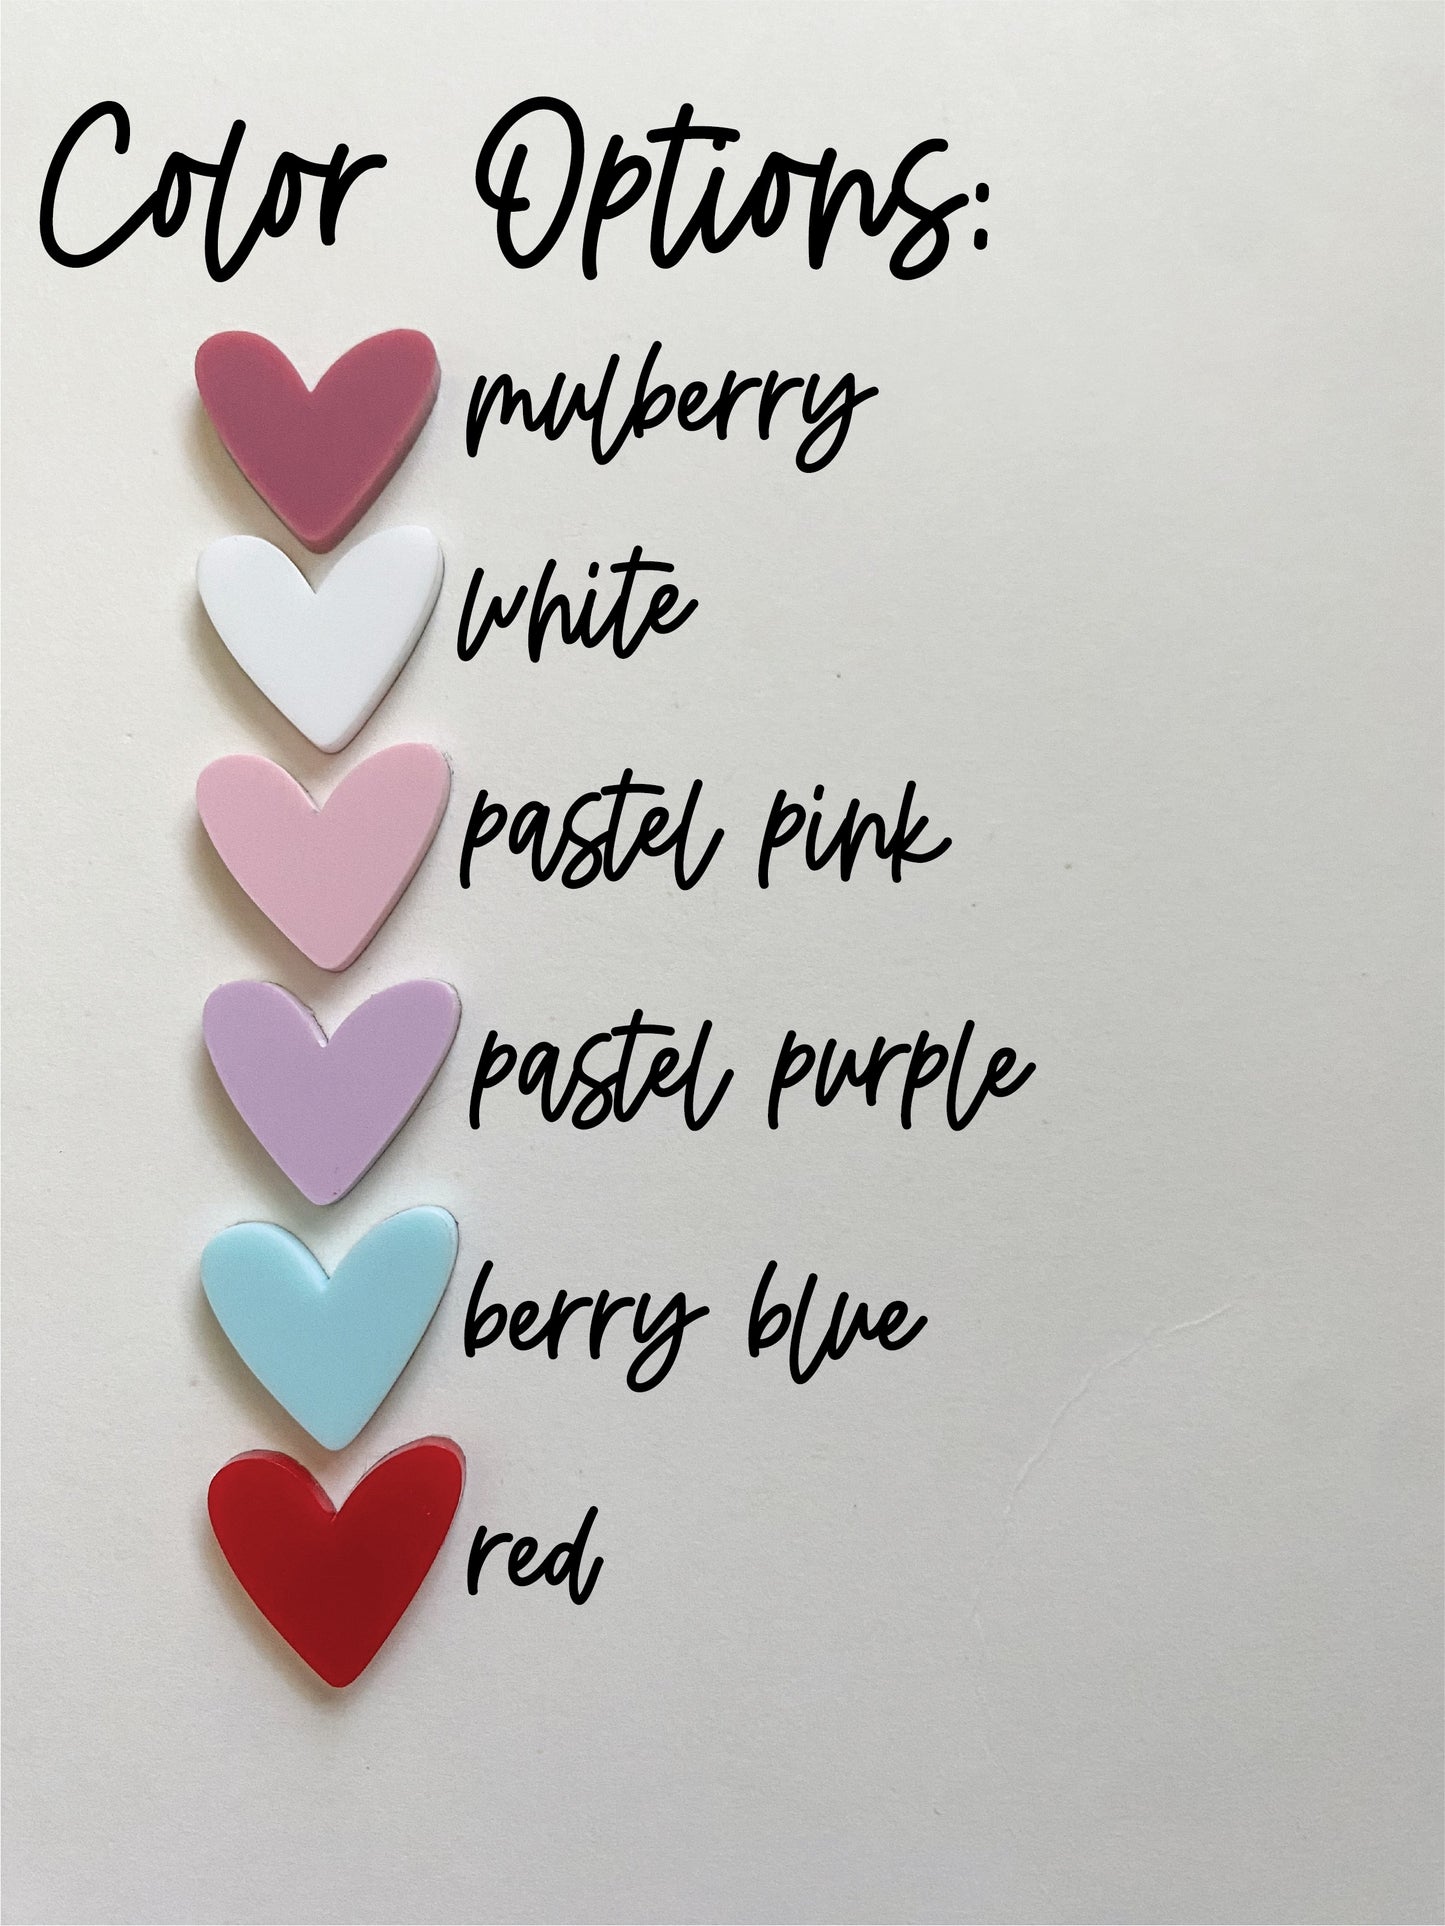 Color Options:
mulberry
white
pastel pink
pastel purple
berry blue
red